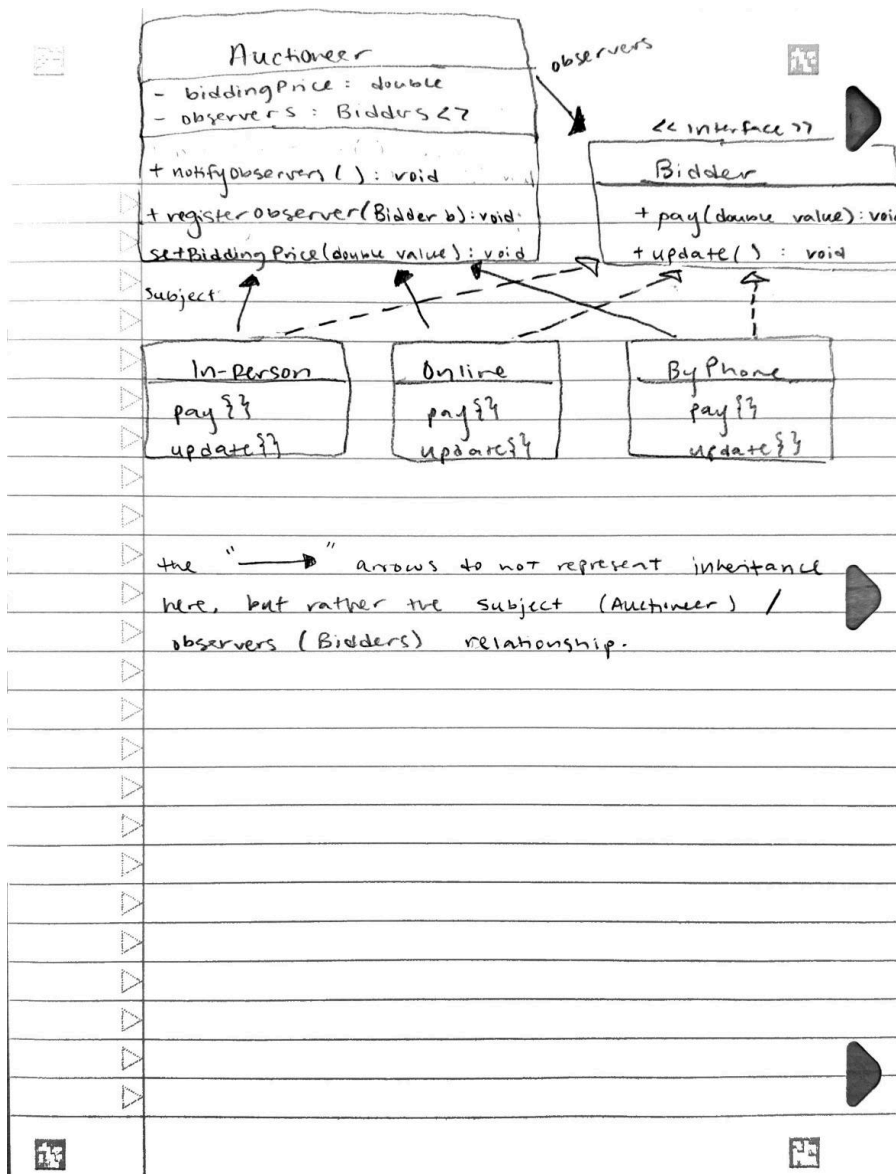 Auctioneer
- biddingPrice : double
- observers : Bidders<>
+ notifyObservers ( ) : void
+ registerObserver(Bidder b):void
setBiddingPrice(double value) : void
observers
<<interface>>
Bidder
+ pay(double value): void
+ update( ) : void
subject
In-person
pay{}
update{}
Online
pay{}
update{}
ByPhone
pay{}
update{}
the " " arrows to not represent inheritance
here, but rather the subject (Auctioneer) /
observers (Bidders) relationship.